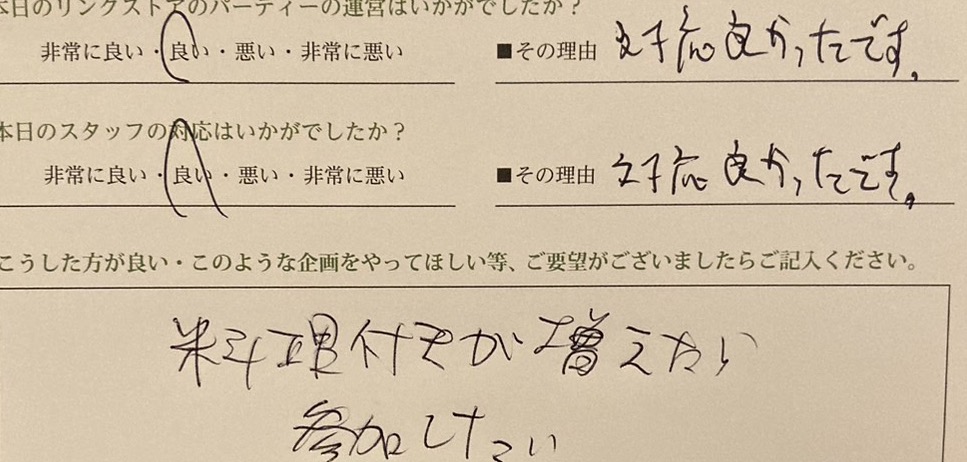 本日のリンクストアのパーティーの運営はいかがでしたか？
非常に良い・良い・悪い・非常に悪い ■その理由 対応良かったです。
本日のスタッフの対応はいかがでしたか？
非常に良い・良い・悪い・非常に悪い ■その理由 対応良かったです。
こうした方が良い・このような企画をやってほしい等、ご要望がございましたらご記入ください。
料理付きが増えたい
参加したい